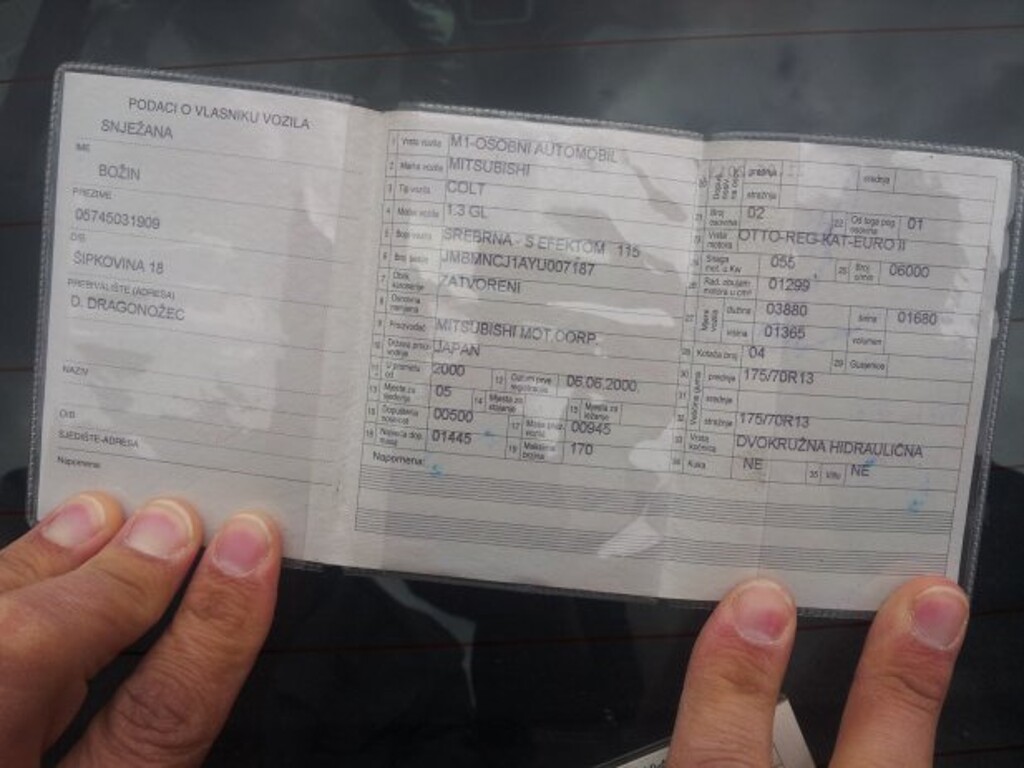 PODACI O VLASNIKU VOZILA
SNJEŽANA
IME
BOŽIN
PREZIME
05745031909
OIB
ŠIPKOVINA 18
PREBIVALIŠTE (ADRESA)
D. DRAGONOŽEC
NAZIV
OIB
SJEDIŠTE-ADRESA
Napomena:
1 Vrsta vozila M1-OSOBNI AUTOMOBIL
2 Marka vozila MITSUBISHI
3 Tip vozila COLT
4 Model vozila 1.3 GL
5 Boja vozila SREBRNA - S EFEKTOM 115
6 Broj šasije JMBMNCJ1AYU007187
7 Oblik karoserije ZATVORENI
8 Osnovna namjena
9 Proizvođač MITSUBISHI MOT.CORP.
10 Država proizvodnje JAPAN
11 2000 12 Datum prve registracije 06.06.2000
13 Mjesta za sjedenje 05 14 Mjesta za stajanje 15 Mjesta za ležanje
16 Dopuštena nosivost 00500 17 Masa praz. vozila 00945
18 Najveća dop. masa 01445 19 Maksim. brzina 170
Napomena:
20 prednja srednja
stražnja
21 Broj osovina 02 22 Od toga pog. osovina 01
23 Vrsta motora OTTO-REG-KAT-EURO II
24 Snaga mot. u Kw 055 25 Broj 06000
26 Rad. obujam motora u cm³ 01299
27 Mjere vozila dužina 03880 širina 01680
visina 01365 volumen
28 Kotača broj 04 29 Gusjenice
30 prednje 175/70R13
31
32 stražnje 175/70R13
33 Vrsta kočnica DVOKRUŽNA HIDRAULIČNA
34 Kuka NE 35 Vitlo NE